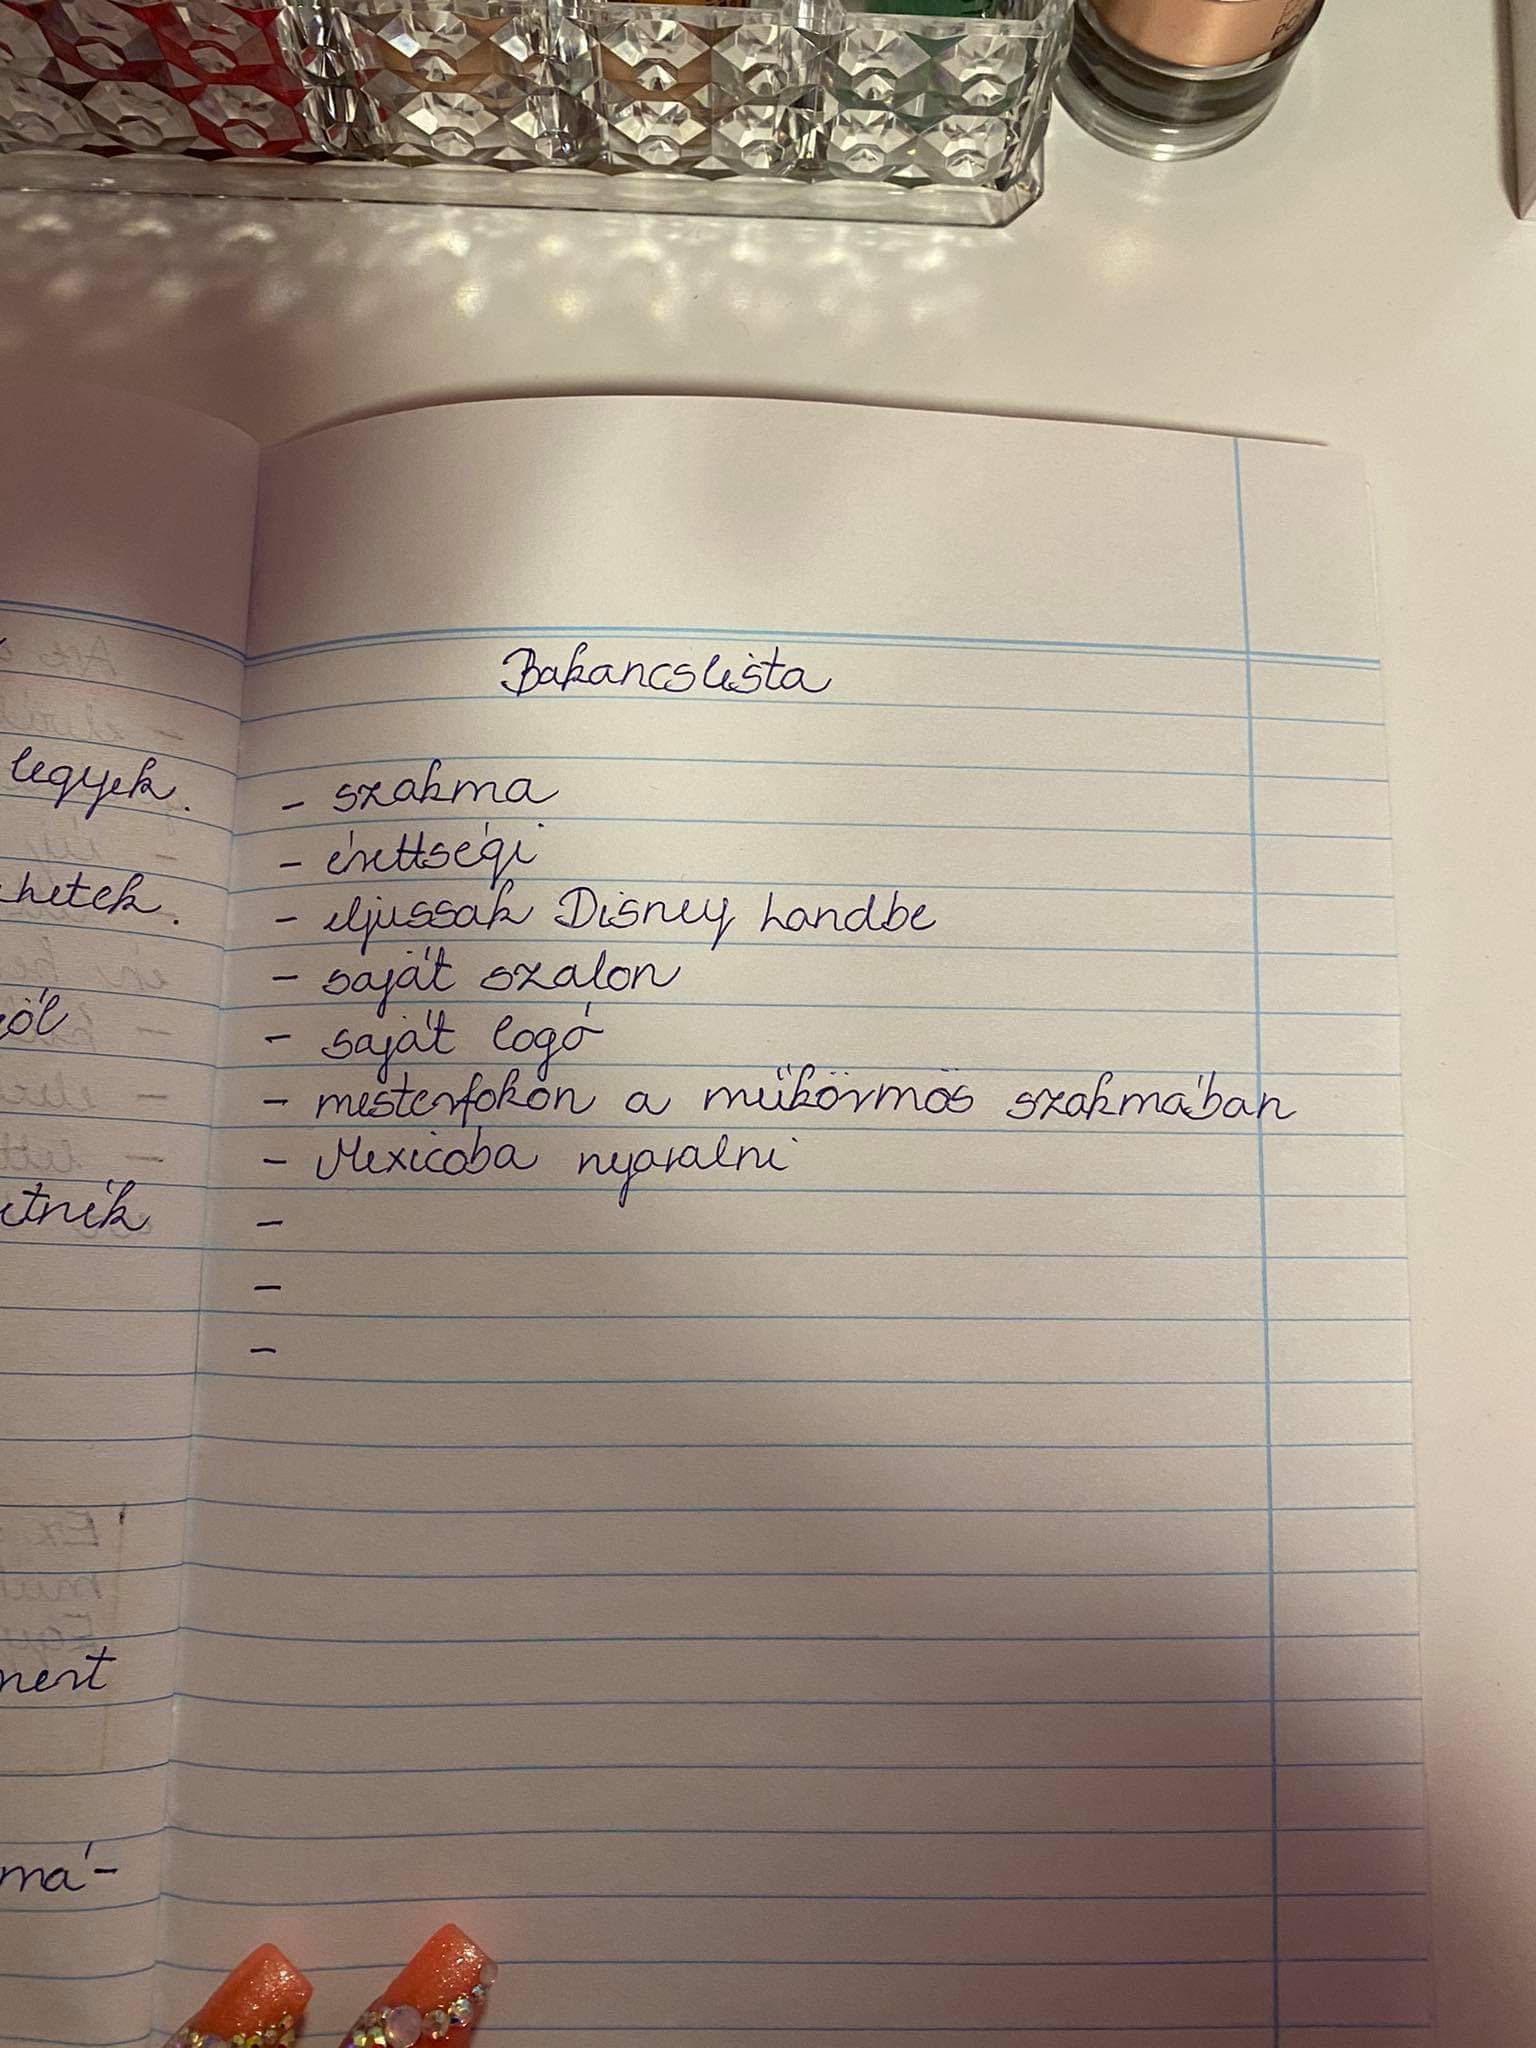 Bakancslista
legyek.
- szakma
- érettségi
hetek.
- eljussak Disney Landbe
- saját szalon
- saját logó
- mesterfokon a műkörmös szakmában
- Mexicoba nyaralni
-
-
-
má-